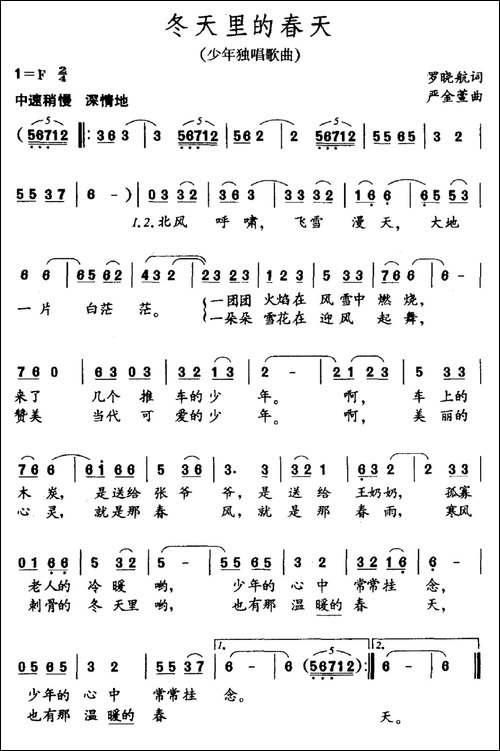 冬天里的春天
(少年独唱歌曲)
1=F 2/4
罗晓航词
中速稍慢 深情地
严金萱曲
(56712 |: 363 | 3 56712 | 2 2 | 2 56712 | 5565 | 32 |
5537 | 6 -) | 0332 | 363 | 3332 | 166 | 6553 |
1.2.北风 呼啸, 飞雪 漫天, 大地
6 6 | 6562 | 432 2 | 2323 | 123 | 533 | 766 | 6 - |
一片 白茫 茫。 一团团 火焰在 风雪中 燃烧,
一朵朵 雪花在 迎风 起舞,
760 | 6303 | 3213 | 2 - | 2 - | 2123 | 533 |
来了 几个 推 车的少 年。 啊, 车上的
赞美 当代 可 爱的少 年。 啊, 美丽的
766 | 6166 | 536 | 3. 3 | 321 | 632 | 233 |
木炭, 是送给 张爷 爷, 是 送给 王奶奶, 孤寡
心灵, 就是那 春 风, 就是 那 春雨, 寒风
0166 | 532 | 5 - | 5565 | 332 | 3216 | 6 - |
老人的 冷暖 哟, 少年的 心中 常常挂 念,
刺骨的 冬天里 哟, 也有那 温暖的春 天,
0565 | 32 | 5537 | 1. 6 - | 6 (56712 :| 2. 6 - | 6 - ||
少年的 心中 常常挂 念。
也有那 温暖的 春 天。